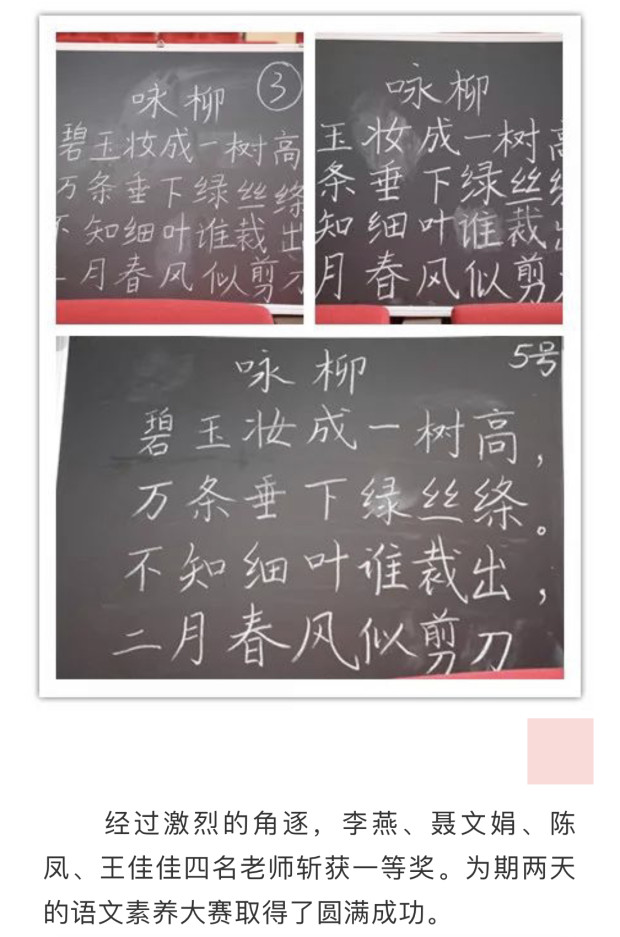 咏柳
③
碧玉妆成一树高
万条垂下绿丝绦
不知细叶谁裁出
二月春风似剪刀
咏柳
玉妆成一树高
条垂下绿丝绦
知细叶谁裁出
月春风似剪刀
咏柳
5号
碧玉妆成一树高，
万条垂下绿丝绦。
不知细叶谁裁出，
二月春风似剪刀
经过激烈的角逐，李燕、聂文娟、陈
凤、王佳佳四名老师斩获一等奖。为期两天
的语文素养大赛取得了圆满成功。